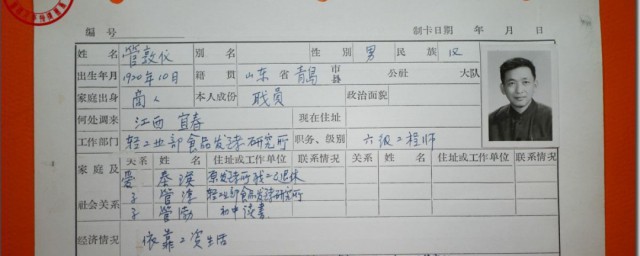 编号 制卡日期 年 月 日
姓名 管敦仪 别名 性别 男 民族 汉
出生年月 1920年10月 籍贯 山东省青岛市县 公社 大队
家庭出身 商人 本人成份 职员 政治面貌
何处调来 江西宜春 现在住址
工作部门 轻工业部食品发酵研究所 职务、级别 六级工程师
家庭及社会关系 关系 姓名 住址或工作单位 联系情况 关系 姓名 住址或工作单位 联系情况
爱 秦瑛 原发酵所技工退休
子 管津 轻工业部食品发酵研究所
子 管渤 初中读书
经济情况 依靠工资生活